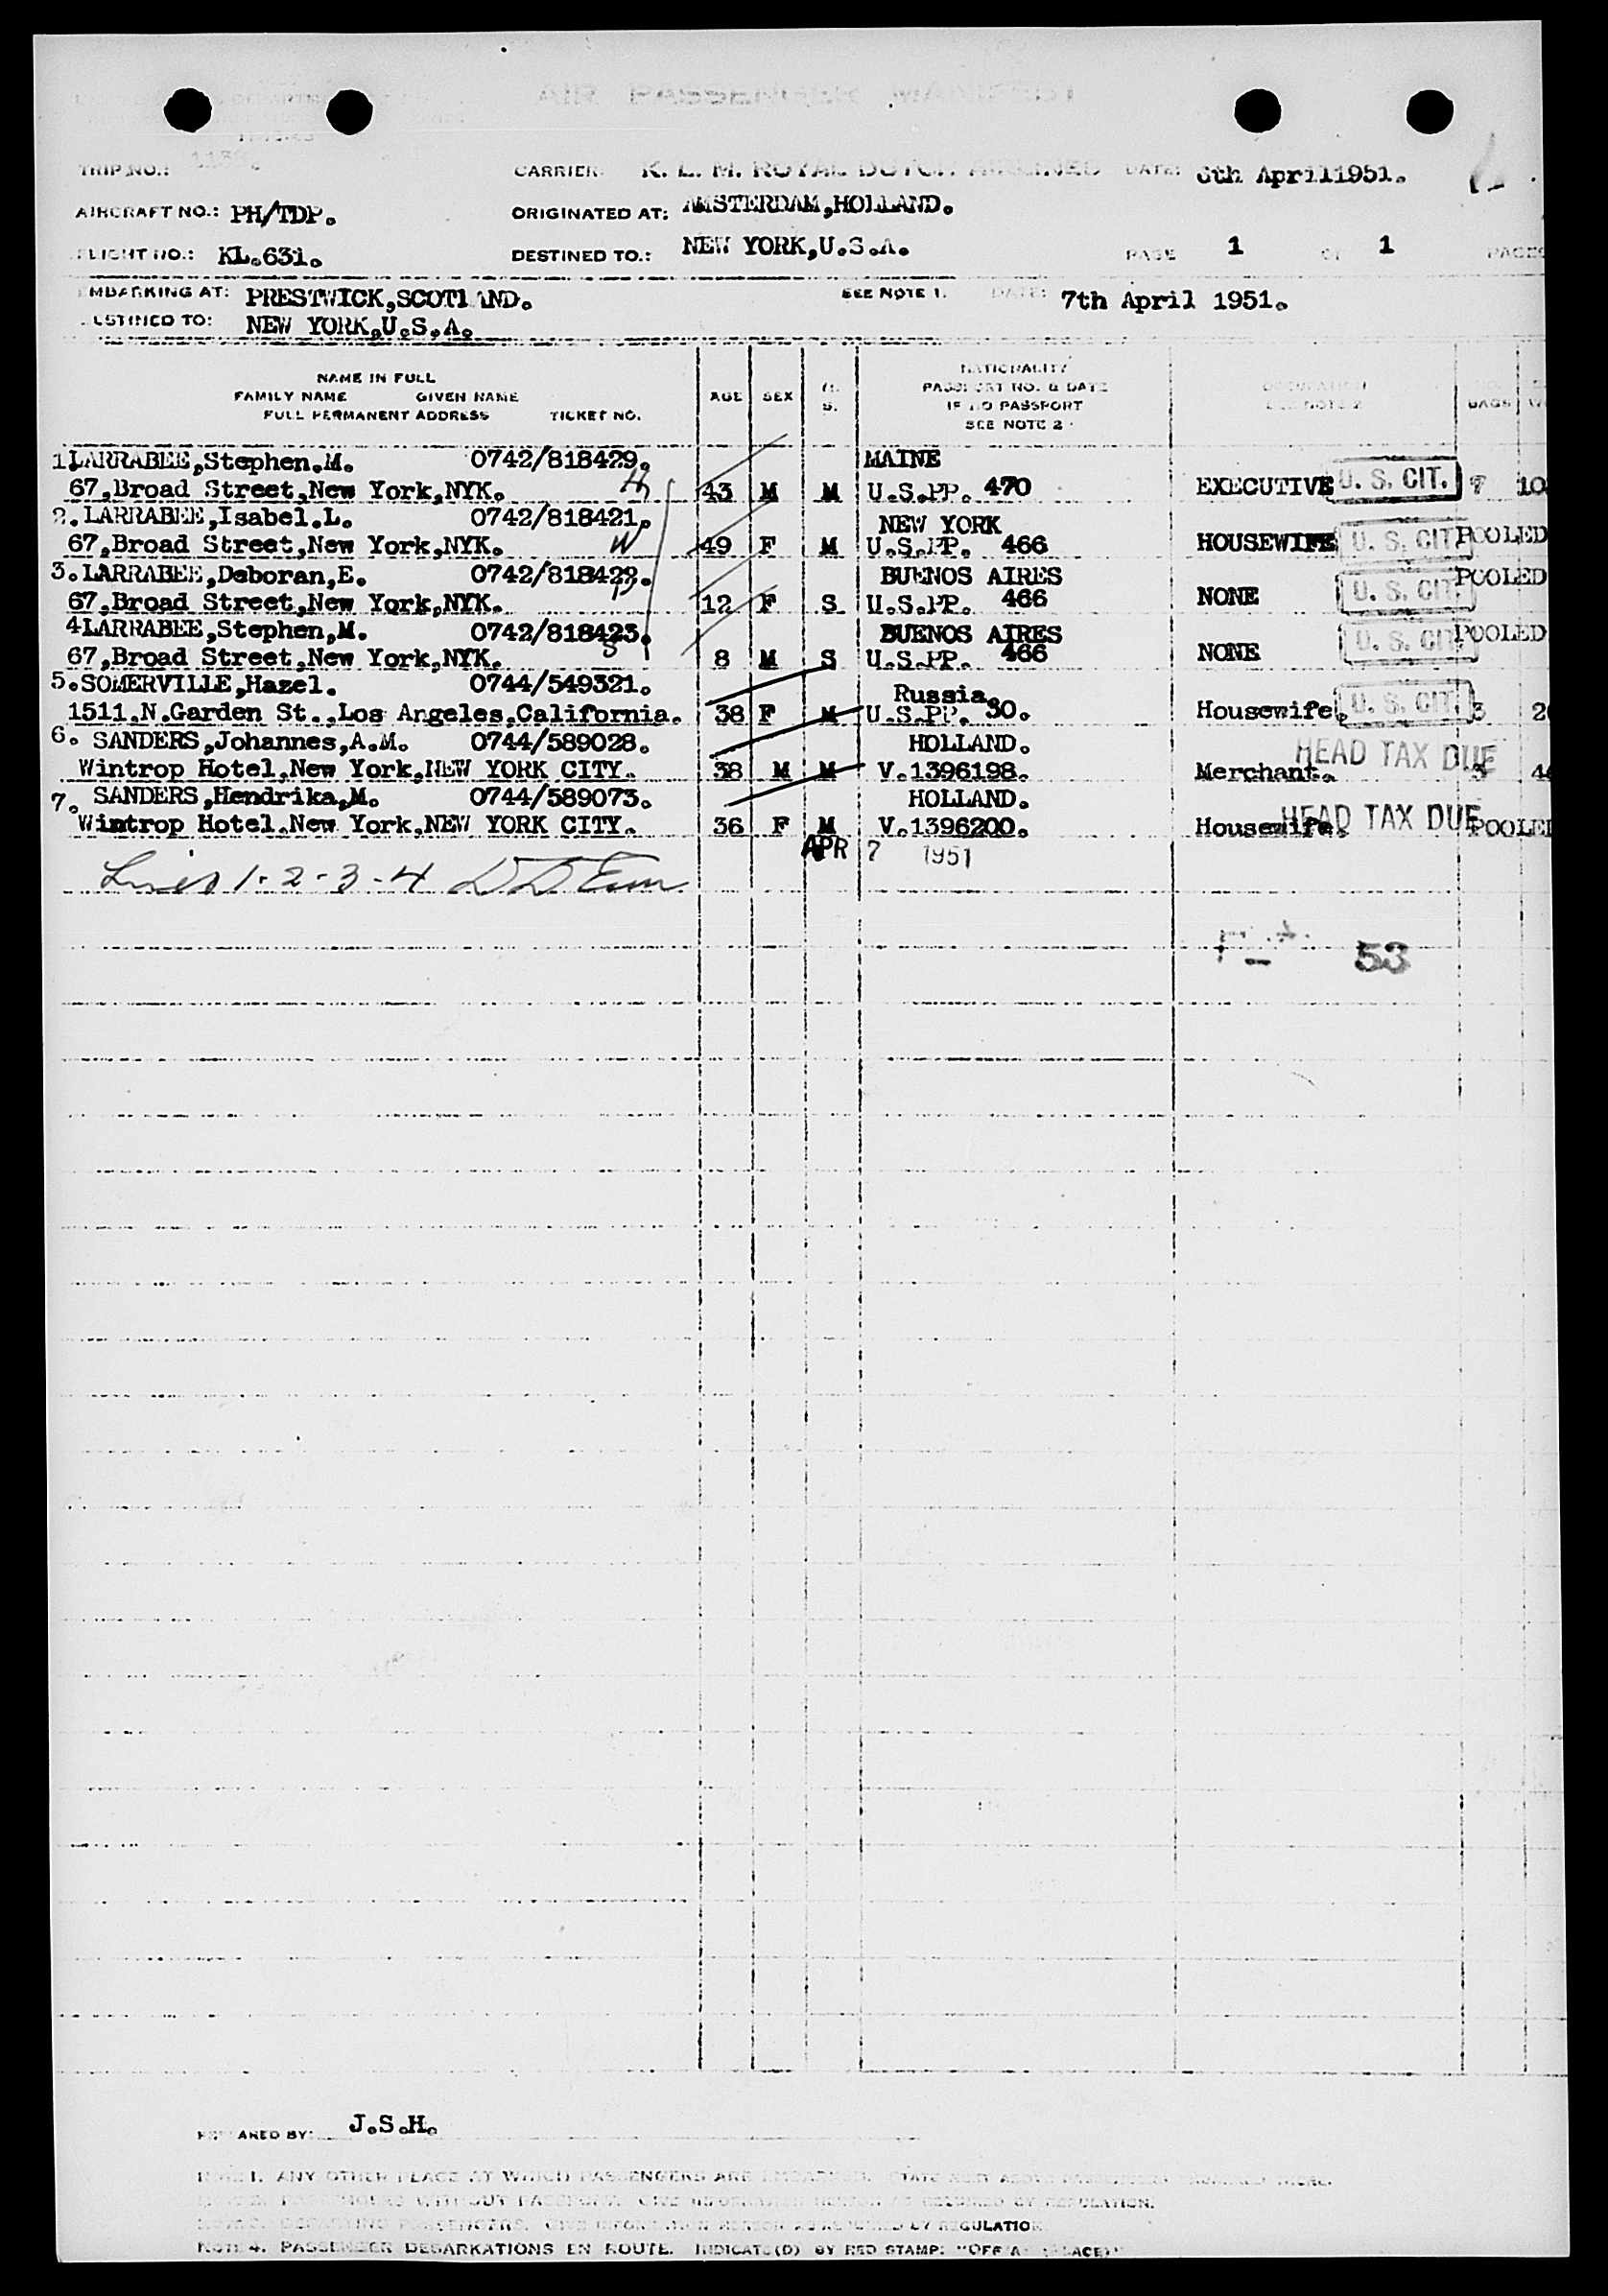 AIR PASSENGER MANIFEST
TRIP NO.: CARRIER: K. L. M. ROYAL DUTCH AIRLINES DATE: 6th April1951.
AIRCRAFT NO.: PH/TDP. ORIGINATED AT: AMSTERDAM,HOLLAND.
FLIGHT NO.: KL.631. DESTINED TO.: NEW YORK,U.S.A. PAGE 1 OF 1 PAGES
EMBARKING AT: PRESTWICK,SCOTLAND. SEE NOTE 1. DATE: 7th April 1951.
DESTINED TO: NEW YORK,U.S.A.
NAME IN FULL NATIONALITY
FAMILY NAME GIVEN NAME AGE SEX M. PASSPORT NO. & DATE OCCUPATION
FULL PERMANENT ADDRESS TICKET NO. S. IF NO PASSPORT SEE NOTE 2 BAGS
SEE NOTE 2
1.LARRABEE,Stephen.M. 0742/818429. MAINE
67,Broad Street,New York,NYK. H 43 M M U.S.PP. 470 EXECUTIVE U. S. CIT. 7 10
2. LARRABEE,Isabel.L. 0742/818421. NEW YORK
67,Broad Street,New York,NYK. W 49 F M U.S.PP. 466 HOUSEWIFE U. S. CIT POOLED
3. LARRABEE,Deboran,E. 0742/818422. BUENOS AIRES
67,Broad Street,New York,NYK. D 12 F S U.S.PP. 466 NONE U. S. CIT. POOLED
4LARRABEE,Stephen,M. 0742/818423. BUENOS AIRES
67,Broad Street,New York,NYK. S 8 M S U.S.PP. 466 NONE U. S. CIT POOLED
5.SOMERVILLE,Hazel. 0744/549321. Russia.
1511,N.Garden St.,Los Angeles,California. 38 F M U.S.PP. 30. Housewife. U. S. CIT. 3 2
6. SANDERS,Johannes,A.M. 0744/589028. HOLLAND. HEAD TAX DUE
Wintrop Hotel,New York,NEW YORK CITY. 38 M M V.1396198. Merchant. 3 4
7. SANDERS,Hendrika,M. 0744/589073. HOLLAND. HEAD TAX DUE
Wintrop Hotel,New York,NEW YORK CITY. 36 F M V.1396200. Housewife. POOLED
APR 7 1951
Lines 1-2-3-4
53
PREPARED BY: J.S.H.
NOTE 1. ANY OTHER PLACE AT WHICH PASSENGERS ARE EMBARKED.
REGULATION.
BY REGULATION
NOTE 4. PASSENGER DEBARKATIONS EN ROUTE. INDICATE(D) BY RED STAMP: "OFF AT (PLACE)"